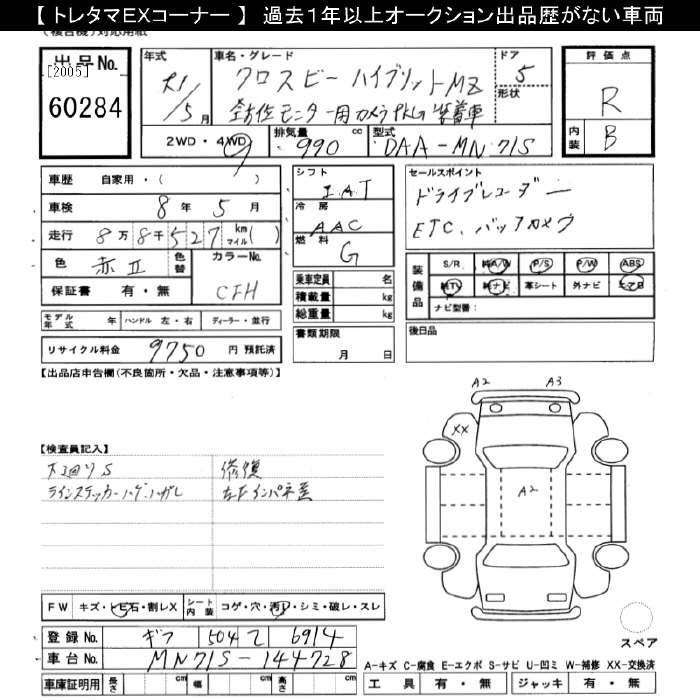 【 トレタマEXコーナー 】 過去1年以上オークション出品歴がない車両
出品No.
[2005]
60284
年式
R1/5月
車名・グレード
クロスビー ハイブリットMZ
全方位モニター用カメラPKG 装着車
ドア
5
形状
評価点
R
内装
B
2WD・4WD
排気量
990 cc
型式
DAA-MN71S
車歴 自家用・( )
車検 8年 5月
走行 8万8千527 km マイル( )
色 赤II
色替
カラーNo.
CFH
保証書 有・無
シフト
IAT
冷房
AAC
燃料
G
乗車定員 名
積載量 kg
総重量 kg
書類期限
月 日
セールスポイント
ドライブレコーダー
ETC、バックカメラ
装備品
S/R 純A/W P/S P/W ABS
純TV 純ナビ 革シート 外ナビ エアB
ナビ型番:
モデル年式 年 ハンドル 左・右 ディーラー・並行
後日品
リサイクル料金 9750 円 預託済
【出品店申告欄(不良箇所・欠品・注意事項等)】
A2 A3
XX
A2
【検査員記入】
下廻りS
ラインステッカーハゲ、ハガレ
修復
左Fインパネ歪
FW キズ・ヒビ石・割レX シート内装 コゲ・穴・汚レ・シミ・破レ・スレ
登録No. ギフ 504 て 6914
車台No. MN71S-144728
車庫証明用 長さ cm 幅 cm 高さ cm
スペア
A-キズ C-腐食 E-エクボ S-サビ U-凹ミ W-補修 XX-交換済
工具 有・無 ジャッキ 有・無